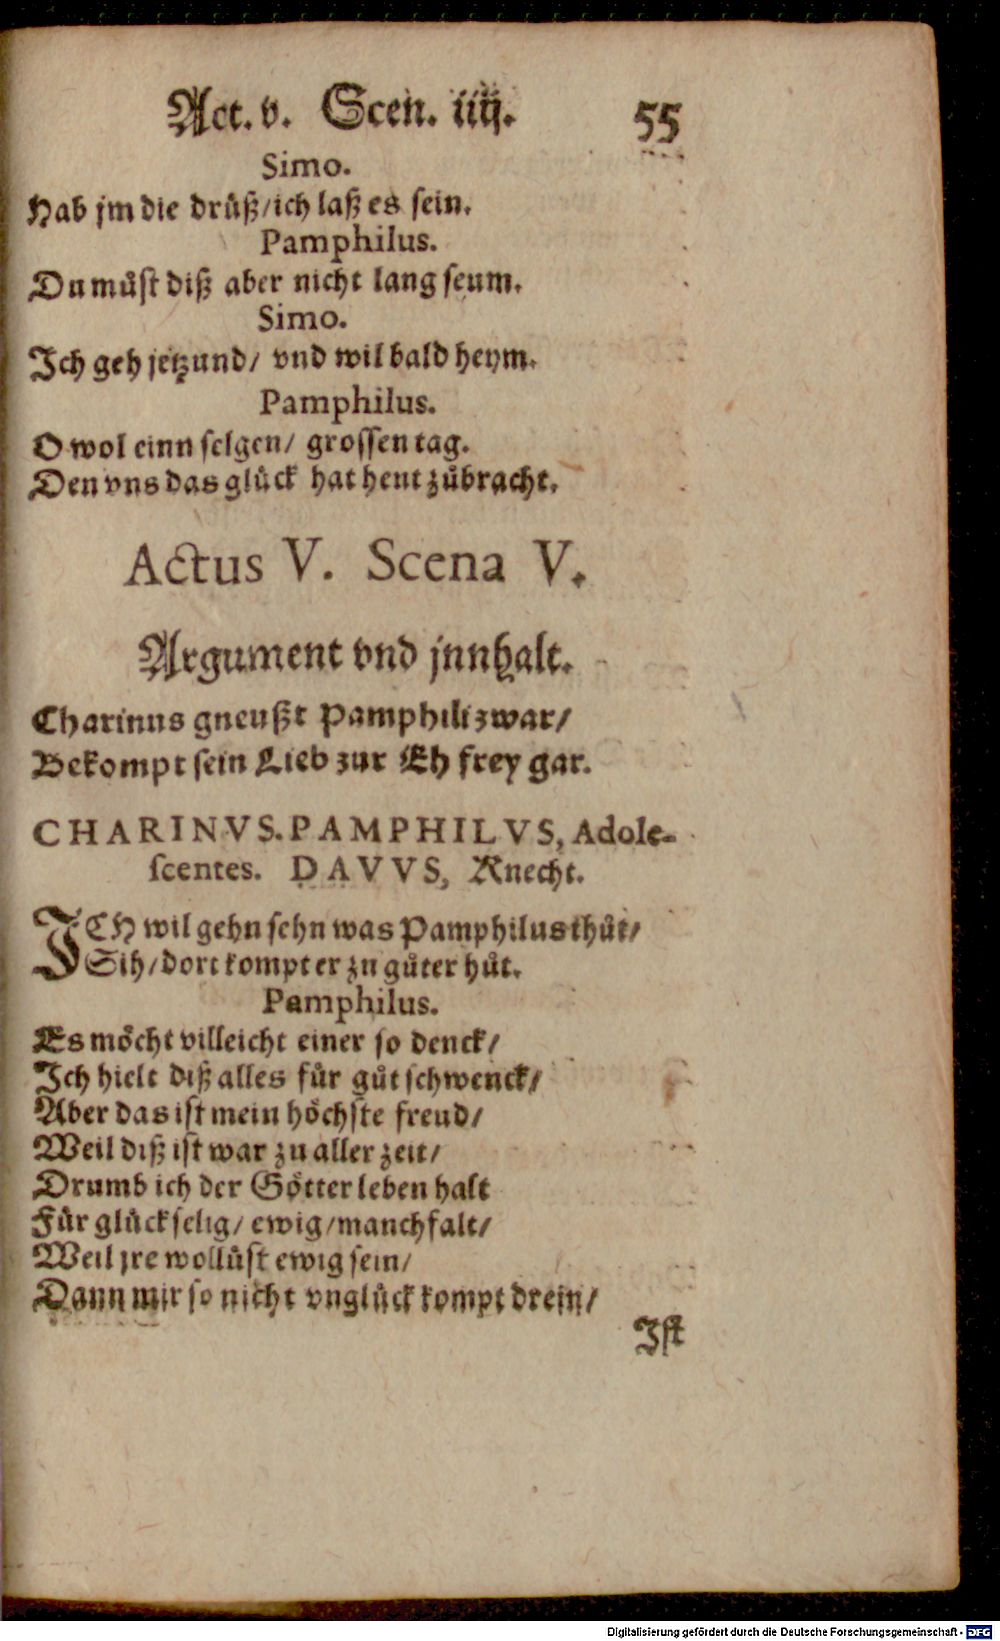 Act. v. Scen. iiij. 55
Simo.
Hab jm die druͤß/ich laß es sein.
Pamphilus.
Du muͤst diß aber nicht lang seum.
Simo.
Ich geh jetzund/ vnd wil bald heym.
Pamphilus.
O wol einn selgen/ grossen tag.
Den vns das gluͤck hat heut zuͤbracht.
Actus V. Scena V.
Argument vnd jnnhalt.
Charinus gneußt Pamphili zwar/
Bekompt sein Lieb zur Eh frey gar.
CHARINVS. PAMPHILVS, Adole-
scentes. DAVVS, Knecht.
ICH wil gehn sehn was Pamphilus thuͤt/
Sih/dort kompt er zu guͤter huͤt.
Pamphilus.
Es moͤcht villeicht einer so denck/
Ich hielt diß alles fuͤr guͤt schwenck/
Aber das ist mein hoͤchste freud/
Weil diß ist war zu aller zeit/
Drumb ich der Goͤtter leben halt
Fuͤr gluͤckselig/ ewig/manchfalt/
Weil jre wolluͤst ewig sein/
Dann mir so nicht vngluͤck kompt drein/
Ist
Digitalisierung gefördert durch die Deutsche Forschungsgemeinschaft - DFG